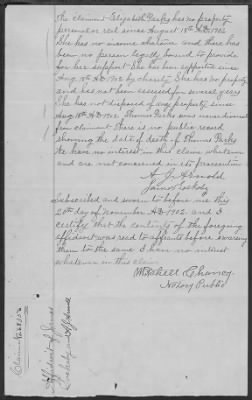 the claimant Elizabeth Parks has no property
personal or real since August 18th AD 1902
She has no income whatever and there has
been no person legally bound to provide
for her support She has been supported since
Aug 18th AD 1902 by charity She has no property
and has not been assessed for several years
She has not disposed of any property since
Aug 18th AD 1902 Thomas Parks was never divorced
from claimant There is no public record
showing the date of death of Thomas Parks
We have no interest in this claim whatever
and are not concerned in its prosecution
A J Arnold
James
Subscribed and sworn to before me this
20th day of November AD 1902 and I
certify that the contents of the foregoing
affidavit was read to affiants before swearing
them to the same I have no interest
whatever in this claim
Mitchell Chaney
Notary Public
Claim No
Affidavit of James
and A J Arnold